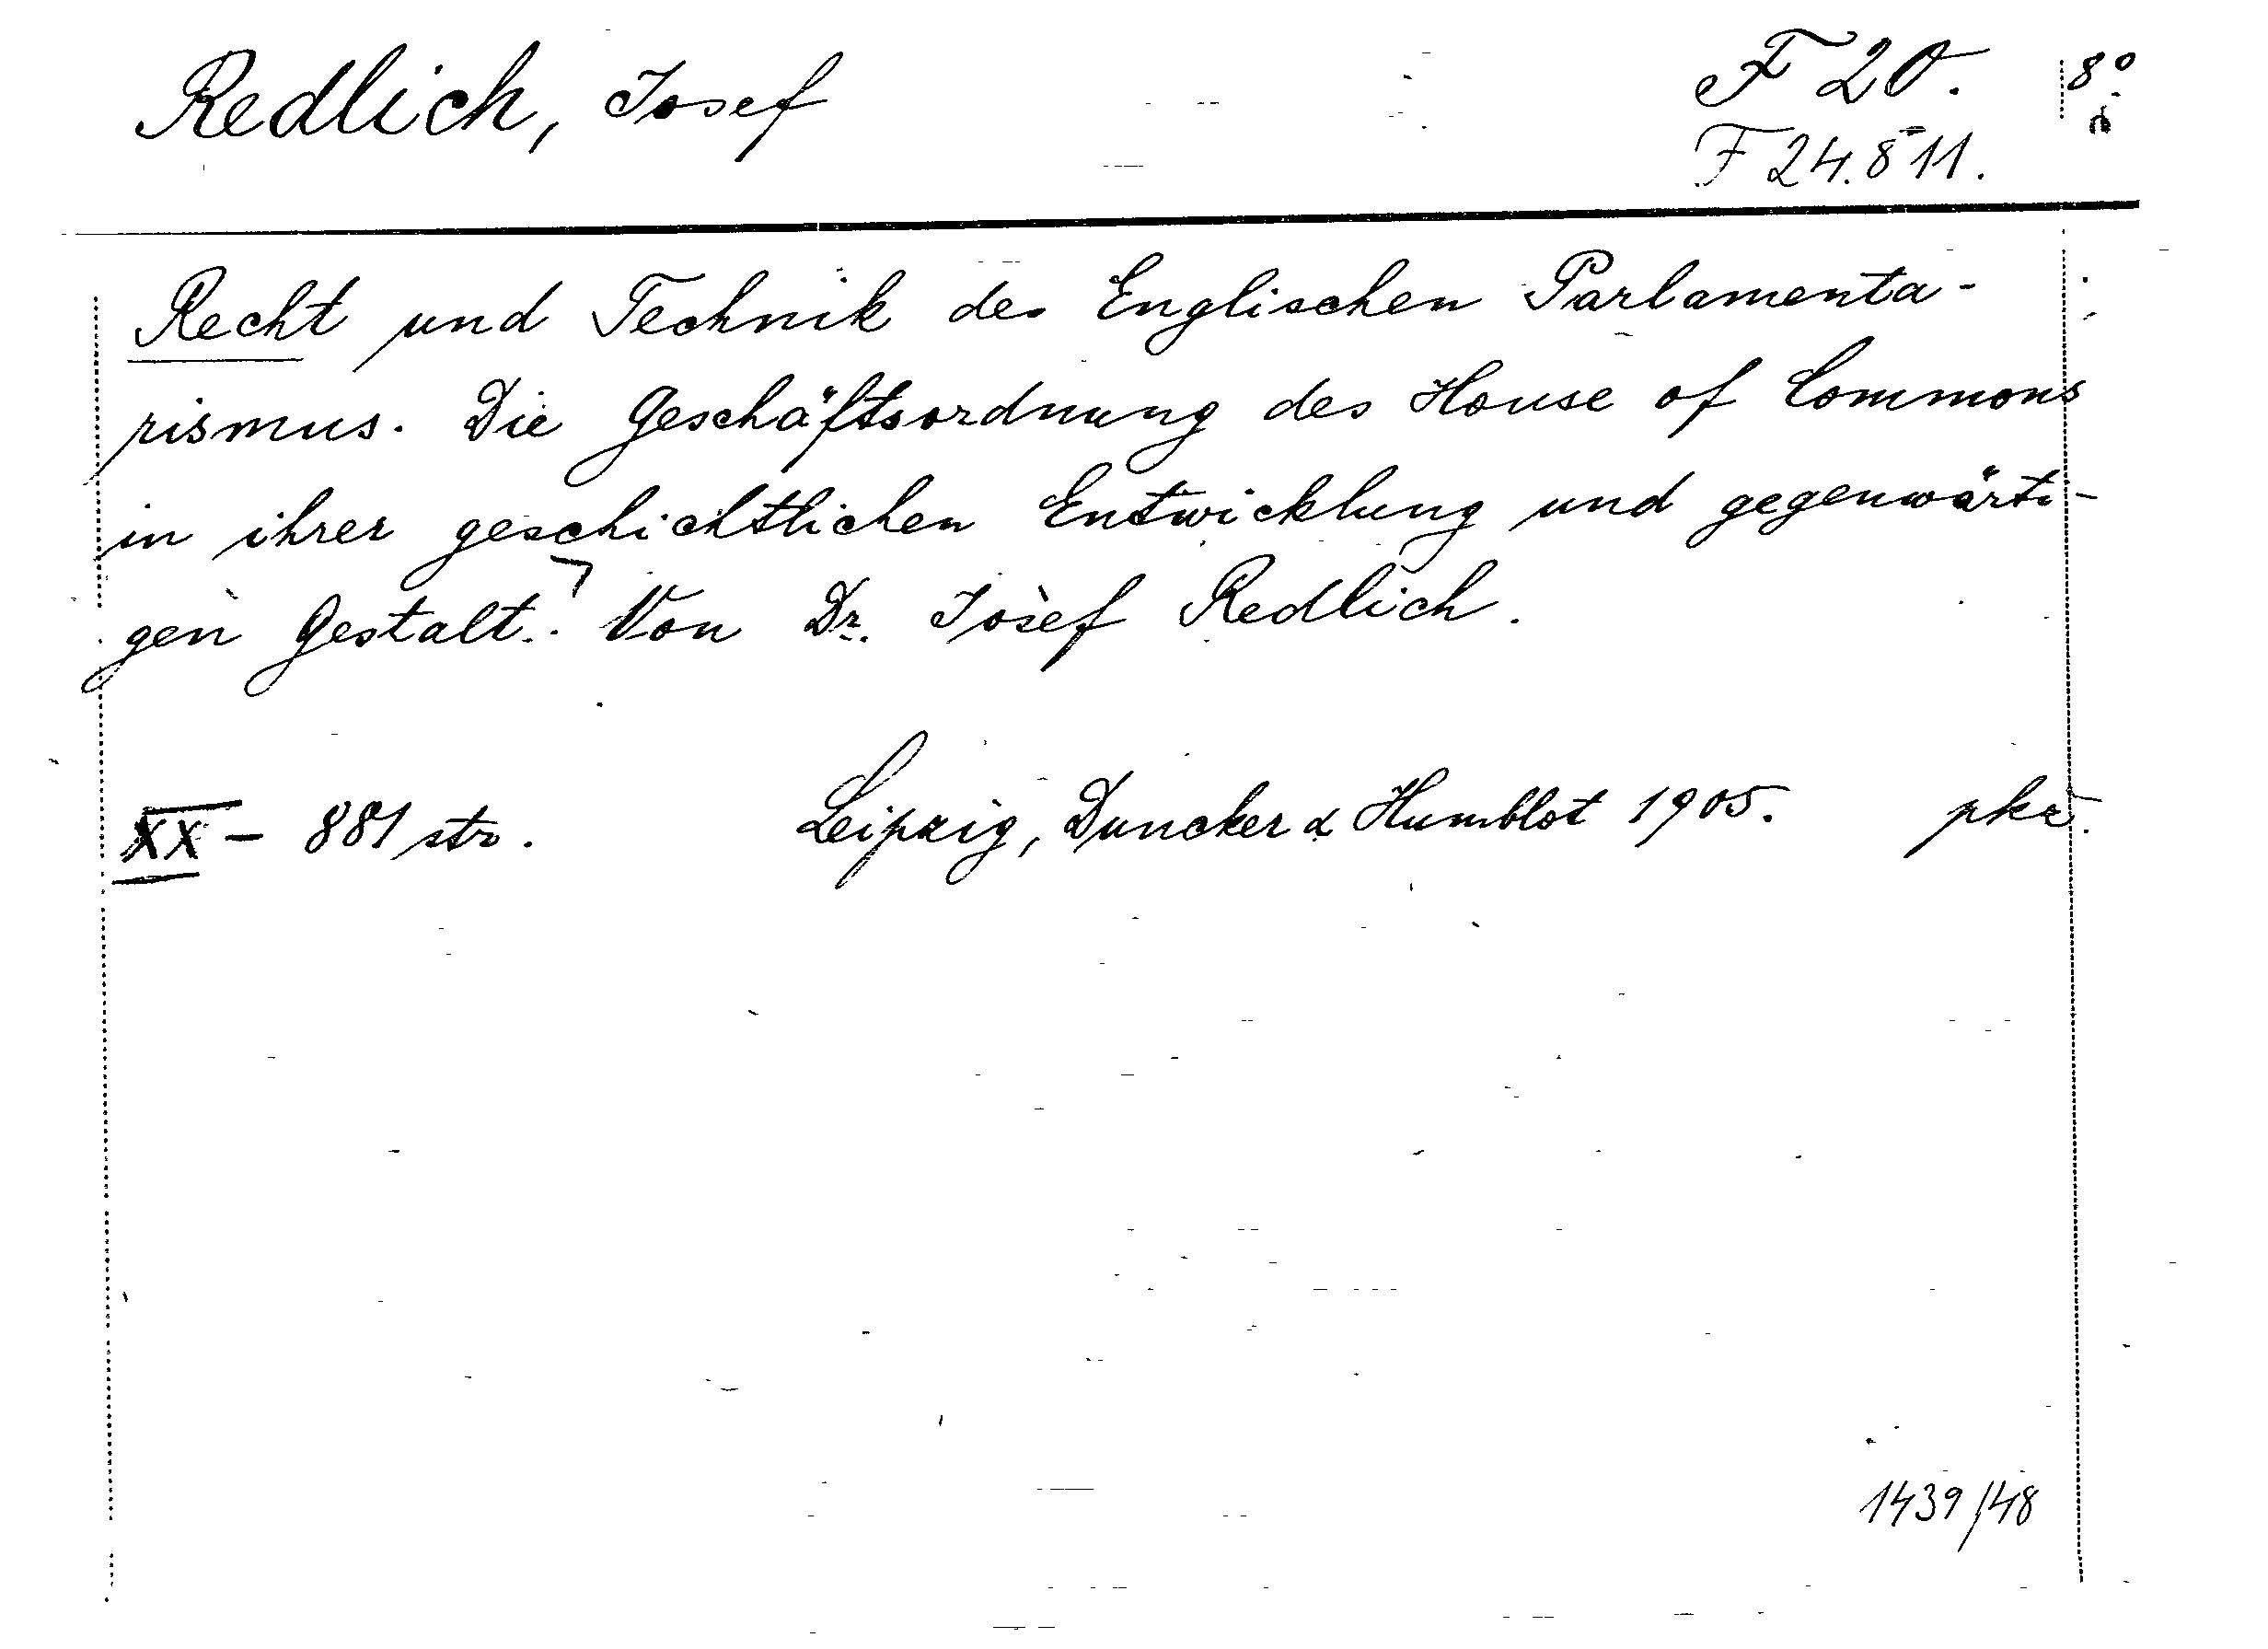 Redlich, Josef
F 20. 8°
F 24.811.
Recht und Technik des Englischen Parlamenta-
rismus. Die Geschäftsordnung des House of Commons
in ihrer geschichtlichen Entwicklung und gegenwärti-
gen Gestalt. Von Dr. Josef Redlich.
XX - 881 str. Leipzig, Duncker & Humblot 1905.
1439/48